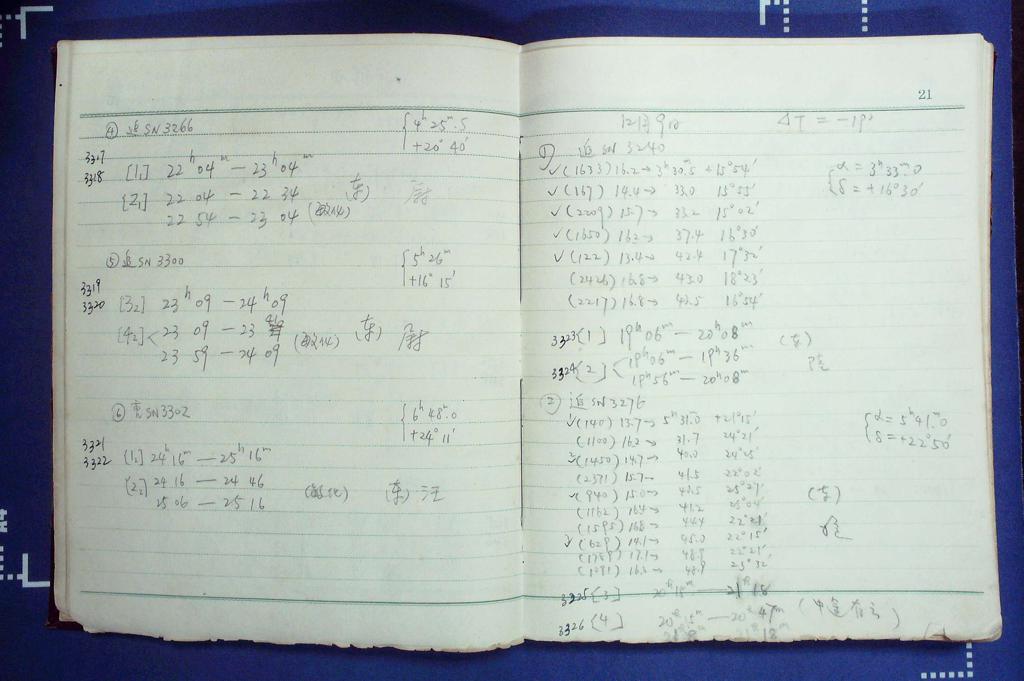 ④ 追 SN 3266
{ 4ʰ 25ᵐ.5
+20° 40′
3317
3318
[1₁] 22ʰ04ᵐ — 23ʰ04ᵐ
[2₁] 22 04 — 22 34
22 54 — 23 04
(东)
⑤ 追 SN 3300
{ 5ʰ 26ᵐ
+16° 15′
3319
3320
[3₂] 23ʰ09 — 24ʰ09
[4₂] < 23 09 — 23
23 59 — 24 09
(东)
⑥ SN 3302
{ 6ʰ 48ᵐ.0
+24° 11′
3321
3322
[1₂] 24ʰ16ᵐ — 25ʰ16ᵐ
[2₂] 24 16 — 24 46
25 06 — 25 16
(东) 汪
21
12月9日 ΔT = -19ˢ
① 追 SN 3240
{ α = 3ʰ 33ᵐ.0
δ = +16°30′
✓(1633) 16.2→ 3ʰ30ᵐ.5 +15°54′
✓(167) 14.4→ 33.0 15°55′
✓(2209) 15.7→ 33.2 15°02′
✓(1650) 16.2→ 37.4 16°30′
✓(122) 13.4→ 42.4 17°32′
(2426) 16.8→ 43.0 18°23′
(2217) 16.8→ 43.5 16°54′
3323 [1] 19ʰ06ᵐ — 20ʰ08ᵐ
(东)
3324 [2] < 19ʰ06ᵐ — 19ʰ36ᵐ
19ʰ56ᵐ — 20ʰ08ᵐ
② 追 SN 3276
{ α = 5ʰ 41ᵐ.0
δ = +22°50′
✓(140) 13.7→ 5ʰ31ᵐ.0 +21°15′
(1100) 16.2→ 31.7 24°21′
✓(1450) 14.7→ 40.0 24°25′
(2371) 15.7→ 41.5 22°02′
✓(940) 15.0→ 43.5 25°27′
(1162) 16.4→ 41.2 25°04′
(1595) 16.8→ 44.4 22°21′
✓(629) 14.1→ 45.0 22°15′
(1759) 17.1→ 48.9 22°21′
(1091) 16.3→ 48.9 23°32′
(东)
3325 [3] 20ʰ15ᵐ — 21ʰ18
3326 [4] 20ʰ15ᵐ — 20ʰ47ᵐ